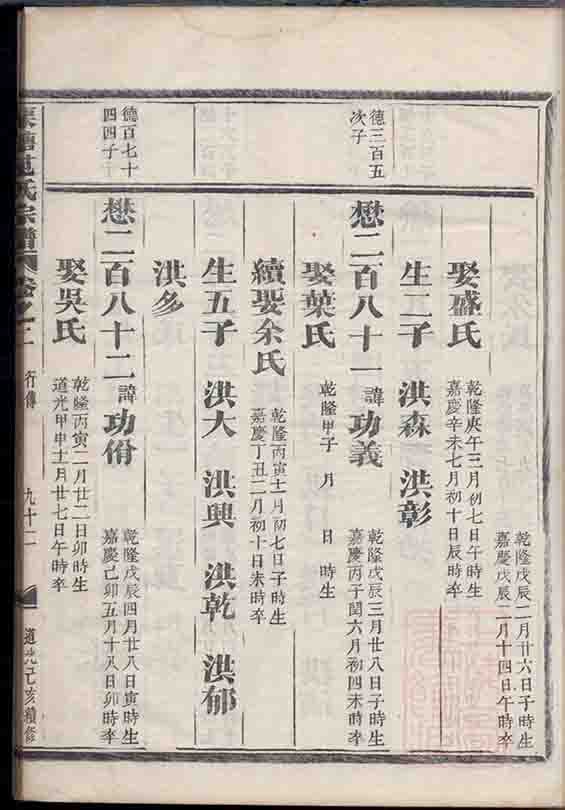 乾隆戊辰二月廿六日子時生
嘉慶戊辰二月十四日午時卒
娶盛氏
乾隆庚午三月初七日午時生
嘉慶辛未七月初十日辰時卒
生二子 洪森 洪彰
德三百五
次子
懋二百八十一 諱功義
乾隆戊辰三月廿八日子時生
嘉慶丙子閏六月初四未時卒
娶葉氏
乾隆甲子 月 日 時生
續娶余氏
乾隆丙寅十一月初七日子時生
嘉慶丁丑二月初十日未時卒
生五子 洪大 洪興 洪乾 洪郁
洪多
德百七十
四四子
懋二百八十二 諱功佾
乾隆戊辰四月廿八日寅時生
嘉慶己卯五月十八日卯時卒
娶吳氏
乾隆丙寅二月廿二日卯時生
道光甲申十二月廿七日午時卒
范氏宗譜 卷之二 行傳 九十二 道光己亥續修